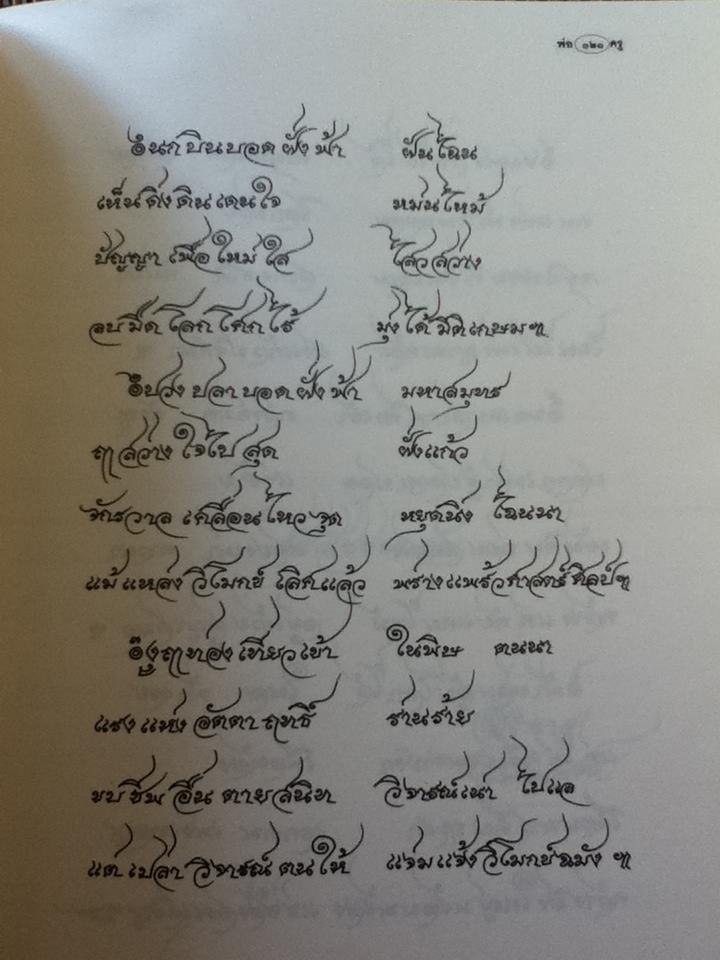 พ่อ ๑๒๑ ครู
๏นกบินบอดฝั่งฟ้า ฝันไฉน
เห็นดั่งดินแดนใจ หม่นไหม้
ปัญญาเพื่อใหม่ใส ไสวสว่าง
ลบมืดโลกโศกไร้ มุ่งได้มิติเกษมฯ
๏ปวงปลาบอดฝั่งฟ้า มหาสมุทร
ฤาสว่างใจไปสุด ฝั่งแก้ว
จักรวาลเคลื่อนไหวจุด หยุดนิ่ง ไฉนนา
แม้แหล่งวิโมกข์เลิศแล้ว พร่างแพร้วศาสตร์ศิลป์ฯ
๏งูฤาท่องเที่ยวเข้า ในพิษ ตนนา
แรงแห่งอัตตาฤทธิ์ ร่านร้าย
ขบชีพอื่นตายสนิท วิจารณ์เน่า ไปแล
แต่เปล่าวิจารณ์ตนให้ แจ่มแจ้งวิโมกข์ขมังฯ